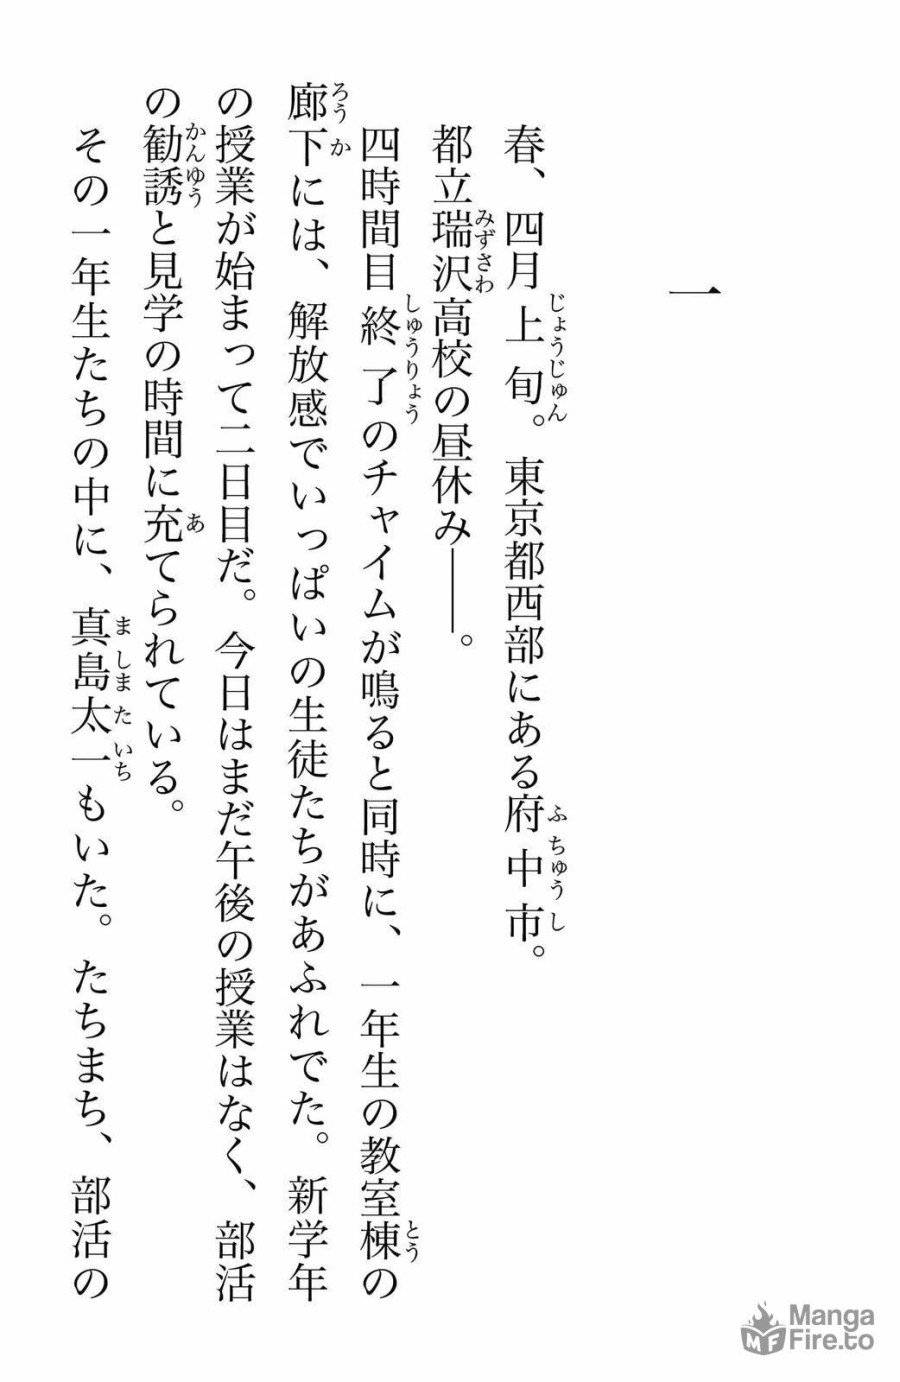 一
春、四月上旬。東京都西部にある府中市。
都立瑞沢高校の昼休み――。
四時間目終了のチャイムが鳴ると同時に、一年生の教室棟の
廊下には、解放感でいっぱいの生徒たちがあふれでた。新学年
の授業が始まって二日目だ。今日はまだ午後の授業はなく、部活
の勧誘と見学の時間に充てられている。
その一年生たちの中に、真島太一もいた。たちまち、部活の
Manga
Fire.to